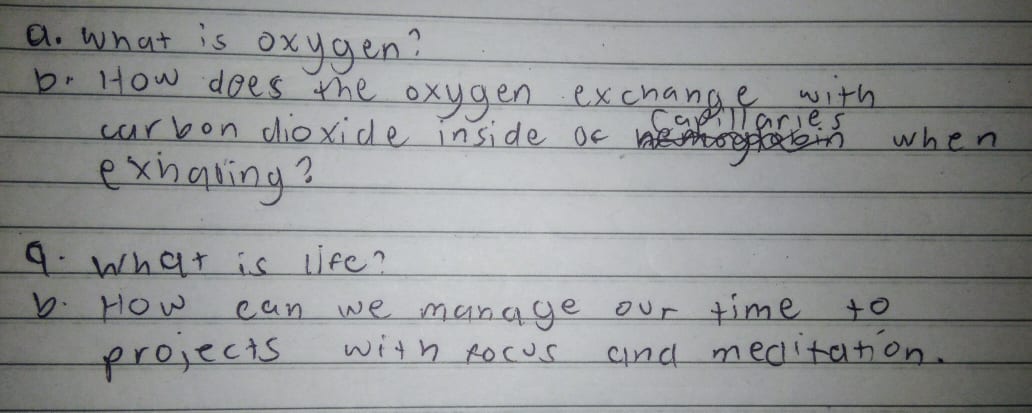 a. What is oxygen?
b. How does the oxygen exchange with
capillaries
carbon dioxide inside of when
exhaling?
a. What is life?
b. How can we manage our time to
projects with focus and meditation.